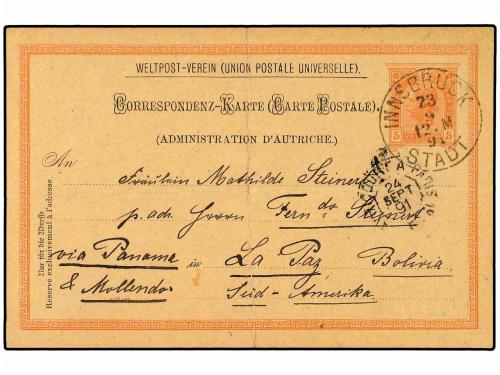 WELTPOST-VEREIN (UNION POSTALE UNIVERSELLE).
CORRESPONDENZ-KARTE (CARTE POSTALE).
(ADMINISTRATION D'AUTRICHE).
INNSBRUCK
23
9
12.M
91
STADT
5
5
An
Fräulein Mathilde Steinert
p. ad. Herrn Fern.do Steinert
24
SEPT
91
via Panama in La Paz Bolivia
& Mollendo. Süd-Amerika.
Nur für die Adresse.
Réservé exclusivement à l'adresse.